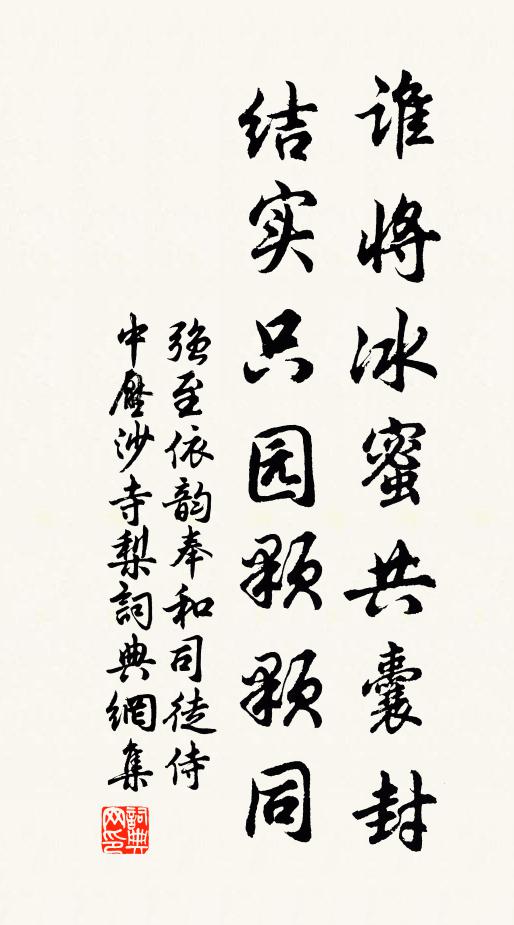 谁将冰蜜共囊封
结实只园颗颗同
强至依韵奉和司徒侍
中壓沙寺梨詞典網集
詞典网印